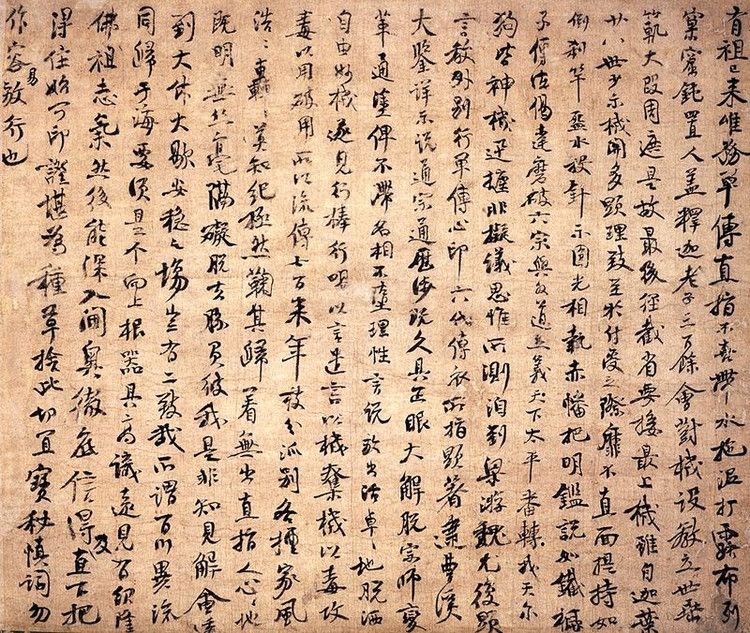 有祖已來唯務單傳直指不喜帶水拖泥打露布列
窠窟鈍置人蓋釋迦老子三百餘會對機設教立世垂
範大段周遮是故最後徑截省要接最上機雖自迦葉
廿八世少示機關多顯理致至於付受之際靡不直面提持如
倒刹竿盌水投針示圓光相執赤幡把明鑑說如鐵橛
子傳法偈達磨破六宗與外道立義天下太平番轉我天尔
狗皆神機迅捷非擬議思惟所測洎到梁游魏尤復顯
言教外別行單傳心印六代傳衣所指顯著逮曹溪
大鑒詳示說通宗通歷涉既久具正眼大解脫宗師變
革通塗俾不滯名相不墮理性言說放出活卓々地脫洒
自由妙機遂見行棒行喝以言遣言以機奪機以毒攻
毒以用破用所以流傳七百來年枝分派別各擅家風
浩々轟々莫知紀極然鞠其歸著無出直指人心々地
既明無絲毫隔礙脫去勝負彼我是非知見解會透
到大休大歇安穩之場豈有二致哉所謂百川異流
同歸于海要須是个向上根器具高識遠見有紹隆
佛祖志氣然後能深入閫奥徹底信得及直下把
得住始可印證堪為種草捨此切宜寶秘慎詞勿
作容易放行也